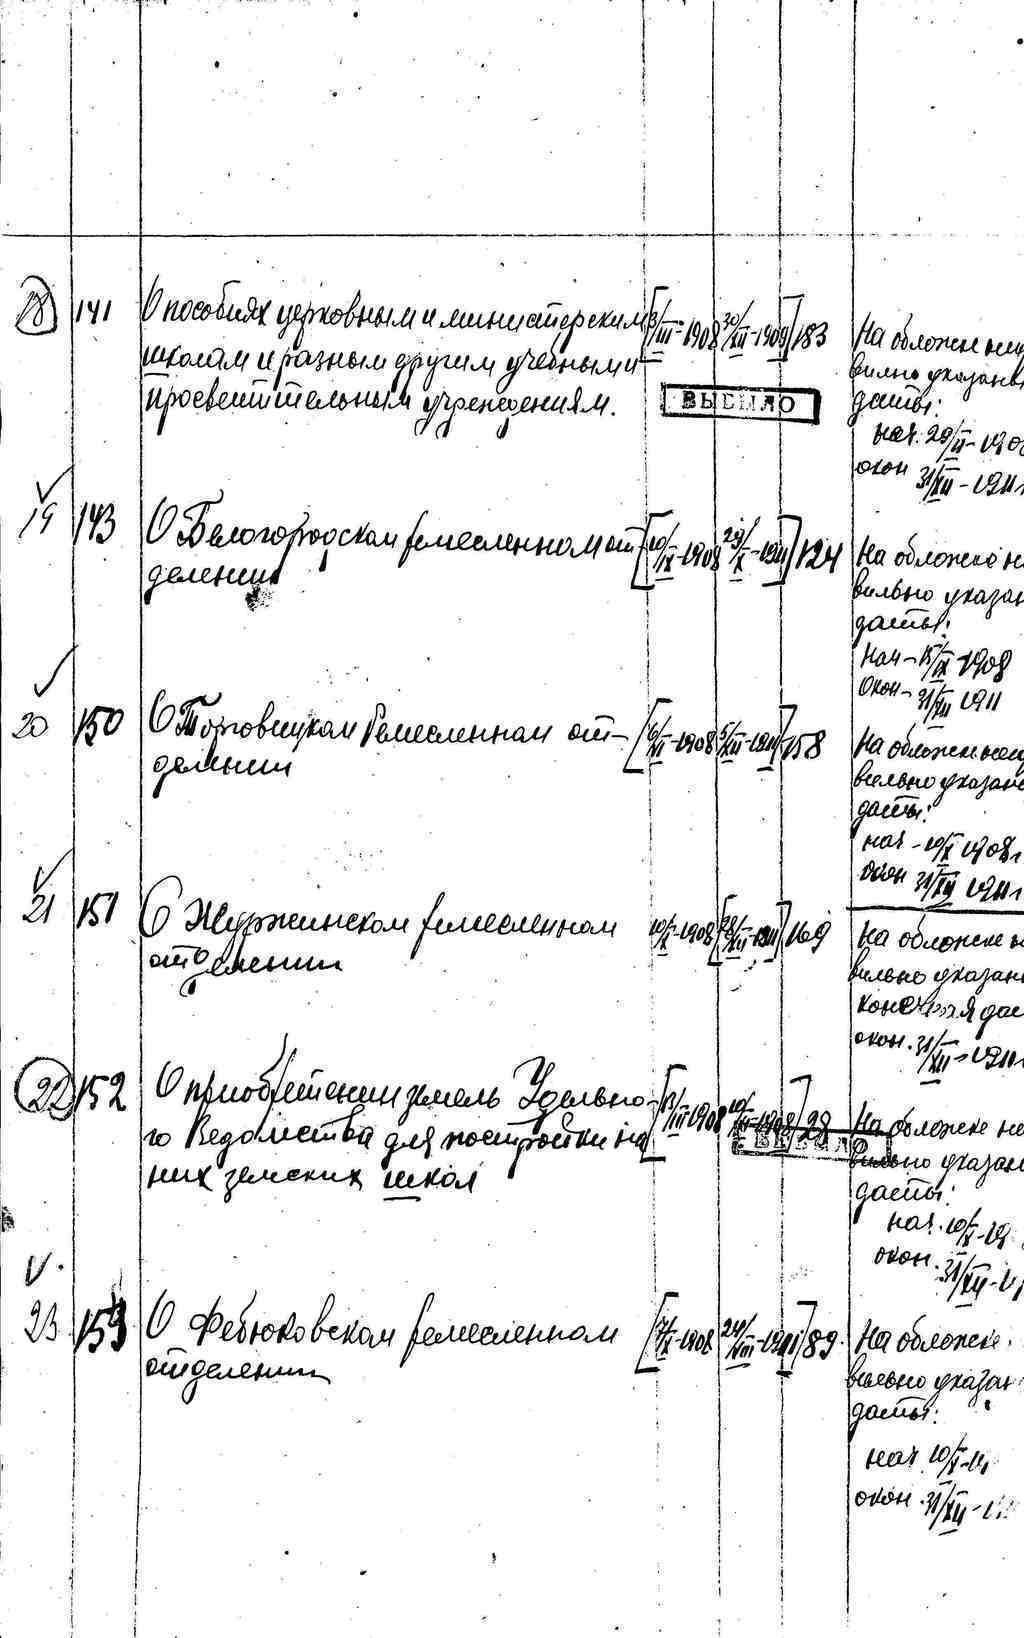 18 141 О пособиях церковным и министерским [3/III-1908 30/XII-1909] 183 На обложке неп
школам и разным другим учебным и вильно указаны
просветительным учреждениям. ВЫБЫЛО даты:
нач. 29/II-190
окон 31/XII-1911г
19 143 О Белогородском ремесленном от [10/IX-1908 29/X-1911] 124 На обложке не
делении вильно указан
даты:
нач-15/IX 1908
Окон-31/XII 1911
20 150 О Торговицком Ремесленном от- [6/XI-1908 5/XII-1911] 158 На обложке неп
делении вильно указан
даты:
нач-10/X 1908г
Окон 31/XII 1911г
21 151 О Журжинском ремесленном 10/X-1908 [28/XII-1911] 169 На обложке н
отделении вильно указан
конечная дат
окон. 31/XII-1911г
22 152 О приобретении земель Удельно- [13/III-1908 10/XII-1908] 28 На обложке не
го Ведомства для постройки на ВЫБЫЛО вильно указан
них земских школ даты:
нач. 10/X-19
окон. 31/XII-1
23 153 О Фебюковском ремесленном [7/X-1908 24/VIII-1911] 89 На обложке
отделении вильно указан
даты:
нач 10/X-19
окон. 31/XII-1